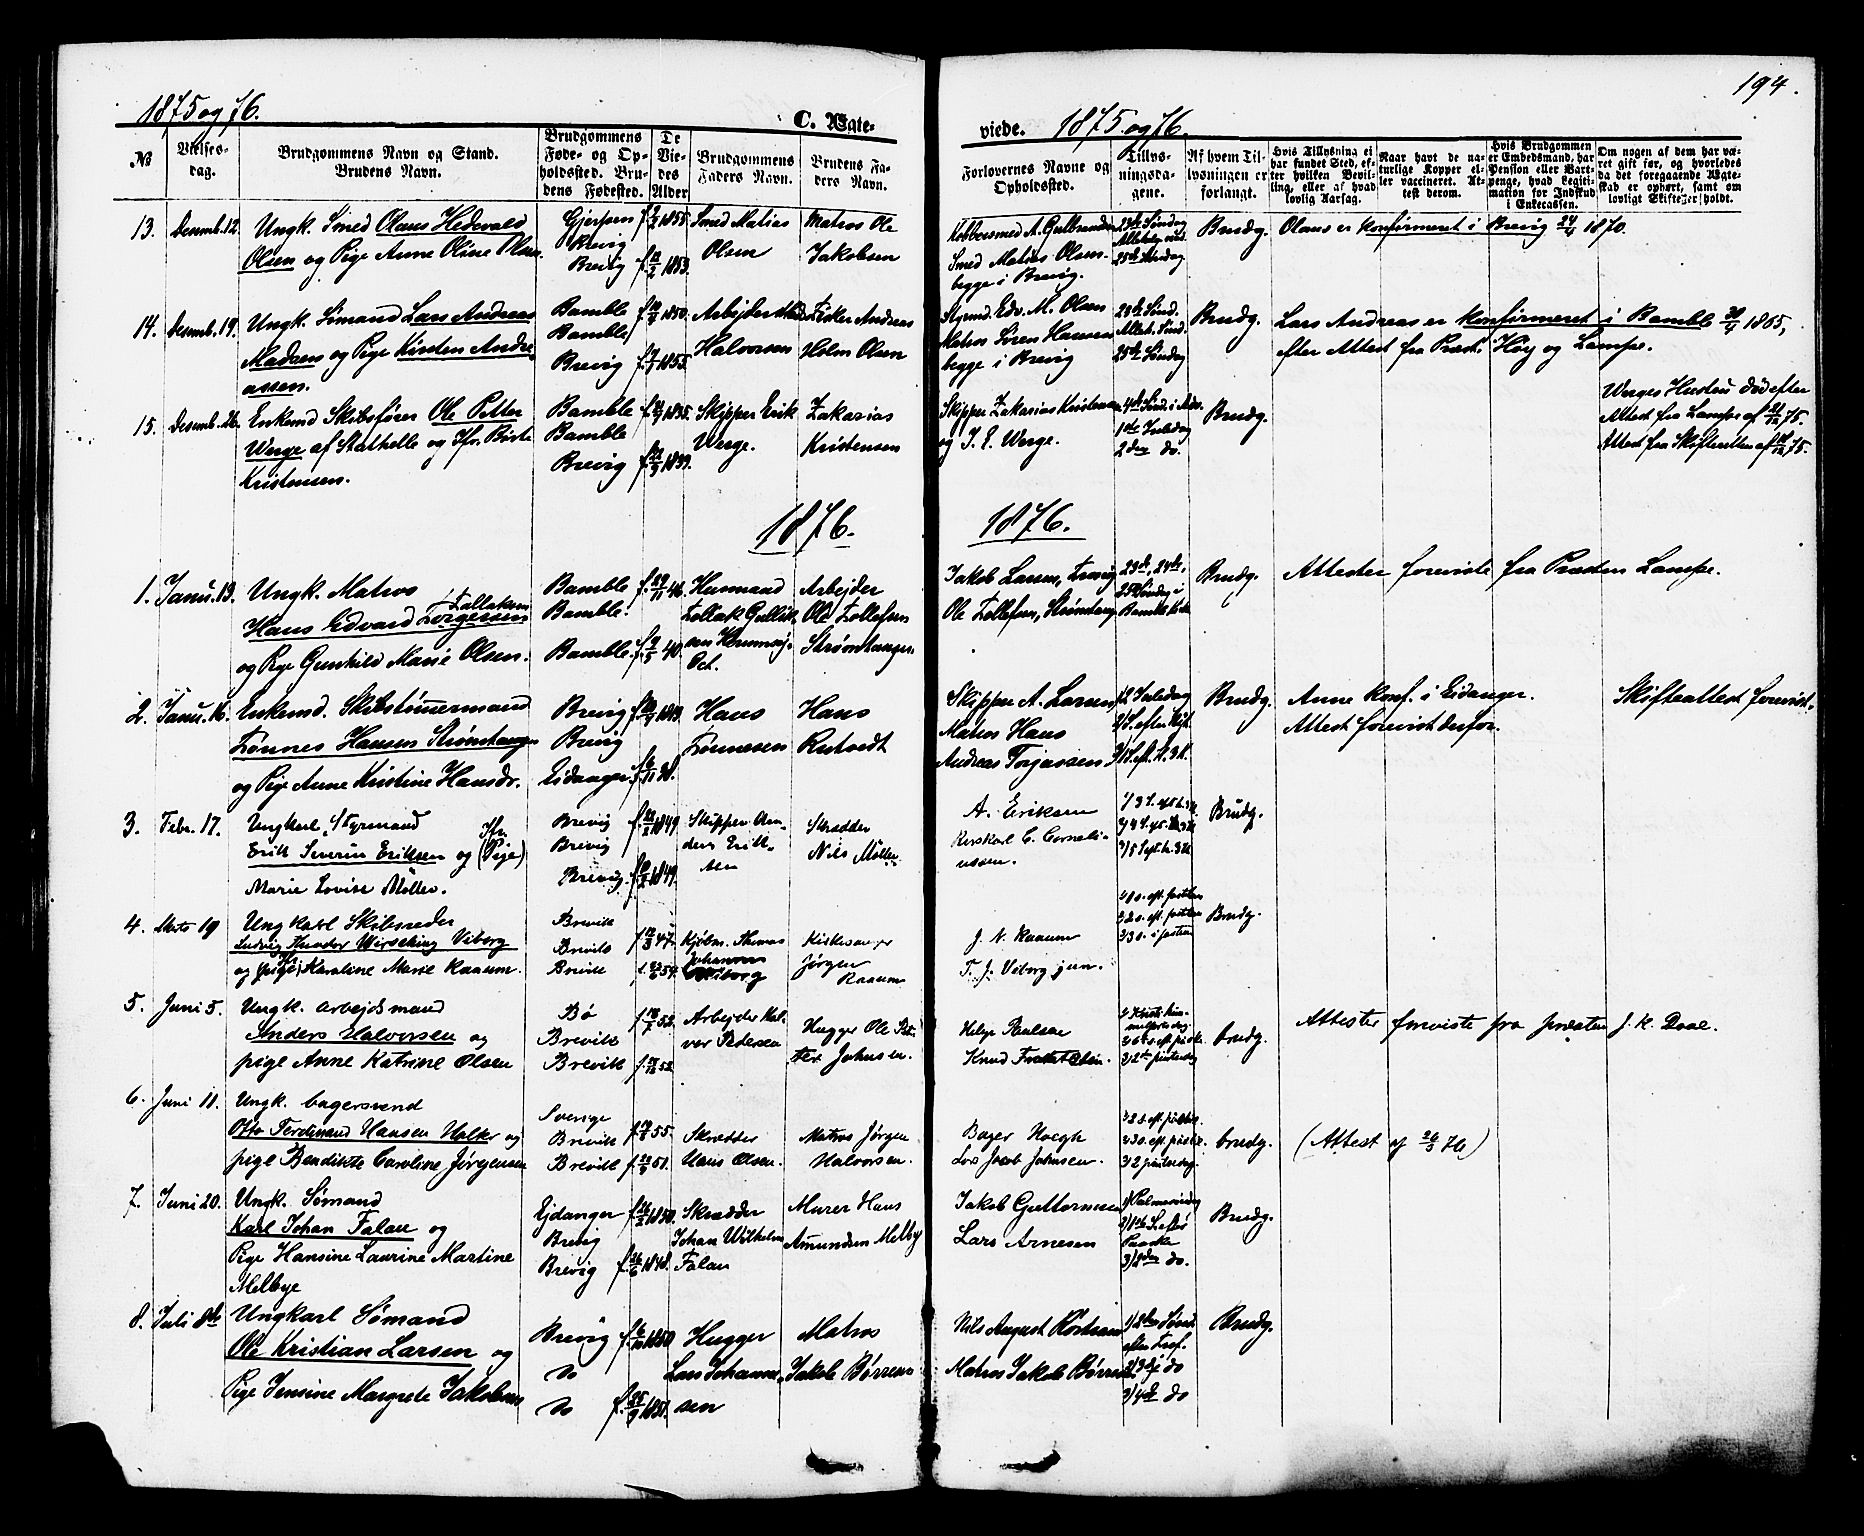 194.
1875 og 76.
C. Ægte-
viede. 1875 og 76.
No
Vielses-
dag.
Brudgommens Navn og Stand.
Brudens Navn.
Brudgommens
Føde- og Op-
holdssted. Bru-
dens Fødested.
De
Vie-
des
Alder
Brudgommens
Faders Navn.
Brudens Fa-
ders Navn.
Forlovernes Navne og
Opholdssted.
Tillys-
ningsda-
gene.
Af hvem Til-
lysningen er
forlangt.
Hvis Tillysning ei
har fundet Sted, ef-
ter hvilken Bevil-
ling, eller af hvad
lovlig Aarsag.
Naar havt de na-
turlige Kopper el-
ler vaccineret. At-
test derom.
Hvis Brudgommen
er Embedsmand, har
Pension eller Vart-
penge, hvad Legiti-
mation for Indskud
i Enkecassen.
Om nogen af dem har væ-
ret gift før, og hvorledes
da det foregaaende Ægte-
skab er ophørt, samt om
lovligt Skifte er holdt.
13. Decemb. 12. Ungk. Smed Olaus Hedevald
Olsen og Pige Anne Oline Olsen
Gjerpen
Brevig
Brevig
1855
1853
Smed Matias
Olsen
Matros Ole
Jakobsen
Kobbersmed A. Gulbrandsen
Smed Matias Olsen
begge i Brevig.
Brudg. Olaus er konfirmeret i Brevig 24/4 1870.
14. Decemb. 19. Ungk. Sømand Lars Andreas
Madsen og Pige Kirsten Andre-
assen.
Bamble
Bamble
Brevig
1850
1855
Arbejder
Halvorsen
Andreas
Holm Olsen
Styrmd. Edv. M. Olsen
Matros Søren Hansen
begge i Brevig
Brudg. Lars Andreas er konfirmeret i Bamble 1865,
efter Attest fra Præst. Høy og Lampe.
15. Decemb. 26. Enkemd Skibsfører Ole Petter
Werge af Stathelle og Jfr. Birte
Kristensen.
Bamble
Bamble
Brevig
1835
1839
Skipper Erik
Werge.
Zakarias
Kristensen
Skipper Zakarias Kristensen
og J. E. Werge.
1ste Juledag
2den do.
Brudg.
Werges Hustru død efter
Attest fra Lampe af 75.
Attest fra Skifteretten af 75.
1876.
1876.
1. Janu. 13. Ungk. Matros
Hans Edvard Torgersen
og Pige Gunhild Marie Olsen.
Bamble
Bamble.
Bamble.
46
40
Ole Tollefsen
Strømtangen
Arbejder
Jakob Larsen,
Ole Tollefsen, Strømtangen
23de, 24de,
25de Søndag i
Brudg. Attester foreviste fra Præsten Lampe.
2. Janu. 16. Enkemd. Skibstømmermand
Tønnes Hansen Strømtangen
og Pige Anne Kristine Hansdr.
Brevig
Brevig
Eidanger
Hans
Tønnesen
Hans
Rustvedt
Skipper A. Larsen
Matros Hans
Andreas Torjussen
2 Juledag
Brudg. Anne konf. i Eidanger.
Attest forevist derfor.
Skifteattest forevist.
3. Febr. 17. Ungkarl, Styrmand
Erik Severin Eriksen og (Pige) Jfr.
Marie Lovise Møller.
Brevig
Brevig
Brevig
1849
1849
Skipper An-
ders Erik-
sen
Skrædder
Nils Møller
A. Eriksen
C. Corneli-
ussen.
Brudg.
4. Marts 19 Ungkarl Skibsreder
Ludvig Theodor Wirsching Viborg
og pige Karoline Marie Raaum.
Brevik
Brevik
Brevik
47.
54.
Kjøbm. Thomas
Johannes
Viborg
Kirkesanger
Jørgen
Raaum
J. N. Raaum
T. J. Viborg jun.
Brudg.
5. Juni 5. Ungk. arbejdsmand
Anders Halvorsen og
pige Anne Katrine Olsen
Bø
Brevik
Brevik
53.
53.
Arbejder Hal-
vor Pedersen
Hugger Ole Pet-
ter Johnsen.
Helge Paulsen
Knud
brudg. Attester foreviste fra præsten J. K. Daae.
6. Juni 11. Ungk. bagersvend
Otto Ferdinand Hansen Holter og
pige Bendikte Caroline Jørgensen
Sverige
Brevik
Brevik
55.
51.
Skrædder
Hans Olsen.
Matros Jørgen
Halvorsen.
Bager Hoegh
Lars Jacob Johnsen.
brudg. (Attest af 26/3 76)
7. Juni 20. Ungk. Sømand
Karl Johan Falau og
Pige Hansine Laurine Martine
Melbye
Ejdanger
Brevig
Brevig
1850.
1848.
Skrædder
Johan Wilhelm
Falau
Murer Hans
Amundsen Melby
Jakob Guttormsen
Lars Arnesen
1/ Palmesøndag
Paaske
3/ 2den do.
Brudg.
8. Juli 8de Ungkarl Sømand
Ole Kristian Larsen og
Pige Jensine Margrete Jakobsen
Brevig
Do
Do
1850
1851.
Hugger
Lars Johanne-
sen
Matros
Jakob Børresen
Nils August
Matros Jakob Børresen
1/ 2den Sønd.
efter Tref.
2/ 3dje do
3/ 4de do
Brudg.